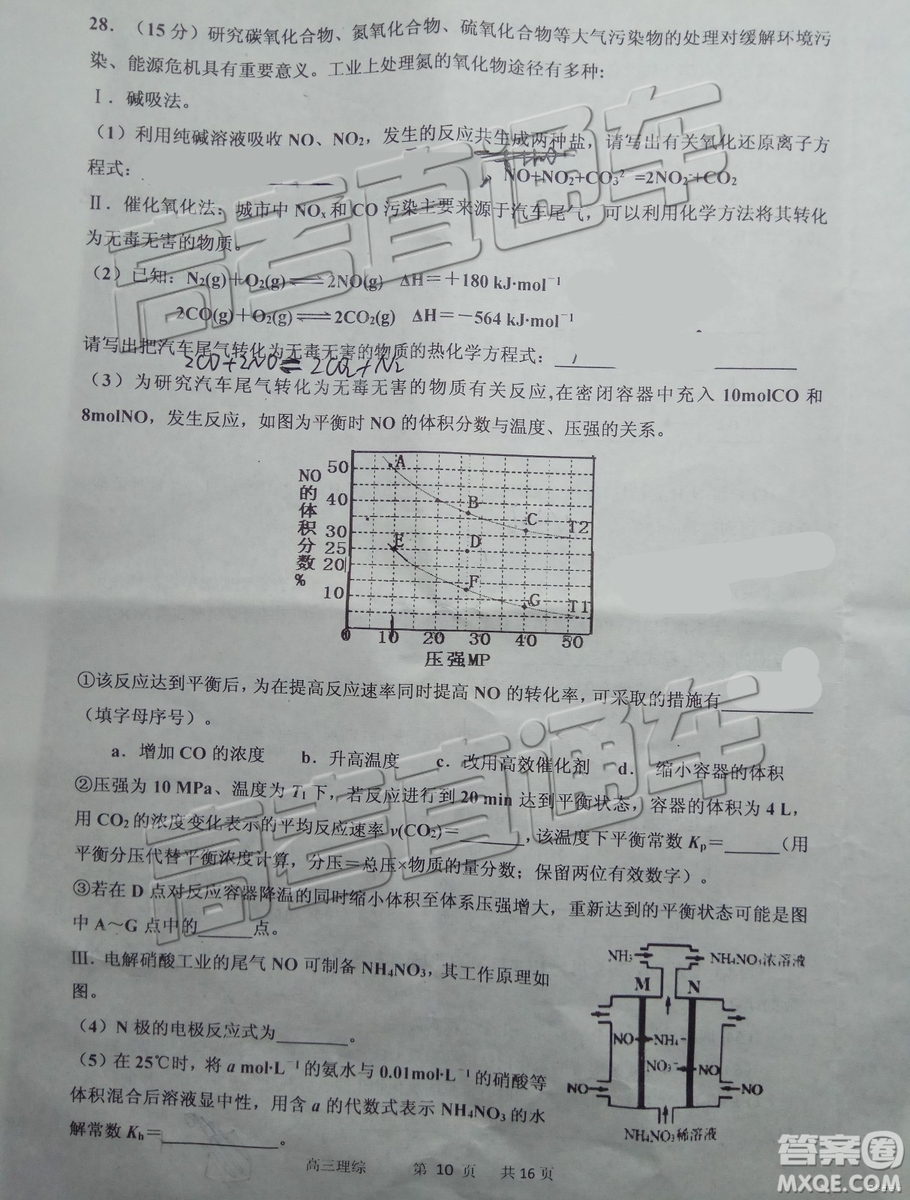 28．（15分）研究碳氧化合物、氮氧化合物、硫氧化合物等大气污染物的处理对缓解环境污
染、能源危机具有重要意义。工业上处理氮的氧化物途径有多种：
Ⅰ．碱吸法。
（1）利用纯碱溶液吸收 NO、NO₂，发生的反应共生成两种盐，请写出有关氧化还原离子方
程式：
NO+NO₂+CO₃²⁻=2NO₂⁻+CO₂
Ⅱ．催化氧化法：城市中 NOₓ和 CO 污染主要来源于汽车尾气，可以利用化学方法将其转化
为无毒无害的物质。
（2）已知：N₂(g)＋O₂(g)⇌2NO(g) ΔH＝＋180 kJ·mol⁻¹
2CO(g)＋O₂(g)⇌2CO₂(g) ΔH＝－564 kJ·mol⁻¹
请写出把汽车尾气转化为无毒无害的物质的热化学方程式：
2CO+2NO⇌2CO₂+N₂
（3）为研究汽车尾气转化为无毒无害的物质有关反应,在密闭容器中充入 10molCO 和
8molNO，发生反应，如图为平衡时 NO 的体积分数与温度、压强的关系。
NO的体积分数%
50
40
30
25
20
10
A
B
C
T2
E
D
F
G
T1
0 10 20 30 40 50
压强MP
①该反应达到平衡后，为在提高反应速率同时提高 NO 的转化率，可采取的措施有______
（填字母序号）。
a．增加 CO 的浓度 b．升高温度 c．改用高效催化剂 d． 缩小容器的体积
②压强为 10 MPa、温度为 T₁下，若反应进行到 20 min 达到平衡状态，容器的体积为 4 L，
用 CO₂的浓度变化表示的平均反应速率 v(CO₂)＝______，该温度下平衡常数 Kₚ＝______（用
平衡分压代替平衡浓度计算，分压＝总压×物质的量分数；保留两位有效数字）。
③若在 D 点对反应容器降温的同时缩小体积至体系压强增大，重新达到的平衡状态可能是图
中 A～G 点中的______点。
Ⅲ．电解硝酸工业的尾气 NO 可制备 NH₄NO₃，其工作原理如
图。
（4）N 极的电极反应式为______。
（5）在 25℃时，将 a mol·L⁻¹的氨水与 0.01mol·L⁻¹的硝酸等
体积混合后溶液显中性，用含 a 的代数式表示 NH₄NO₃的水
解常数 Kₕ＝______。
NH₃
NH₄NO₃浓溶液
M N
NO
NH₄⁻
NO₃⁻
NO
NO
NO
NH₄NO₃稀溶液
高三理综 第 10 页 共 16 页
高考直通车
高考直通车
高考直通车
答案圈
MXQE.COM